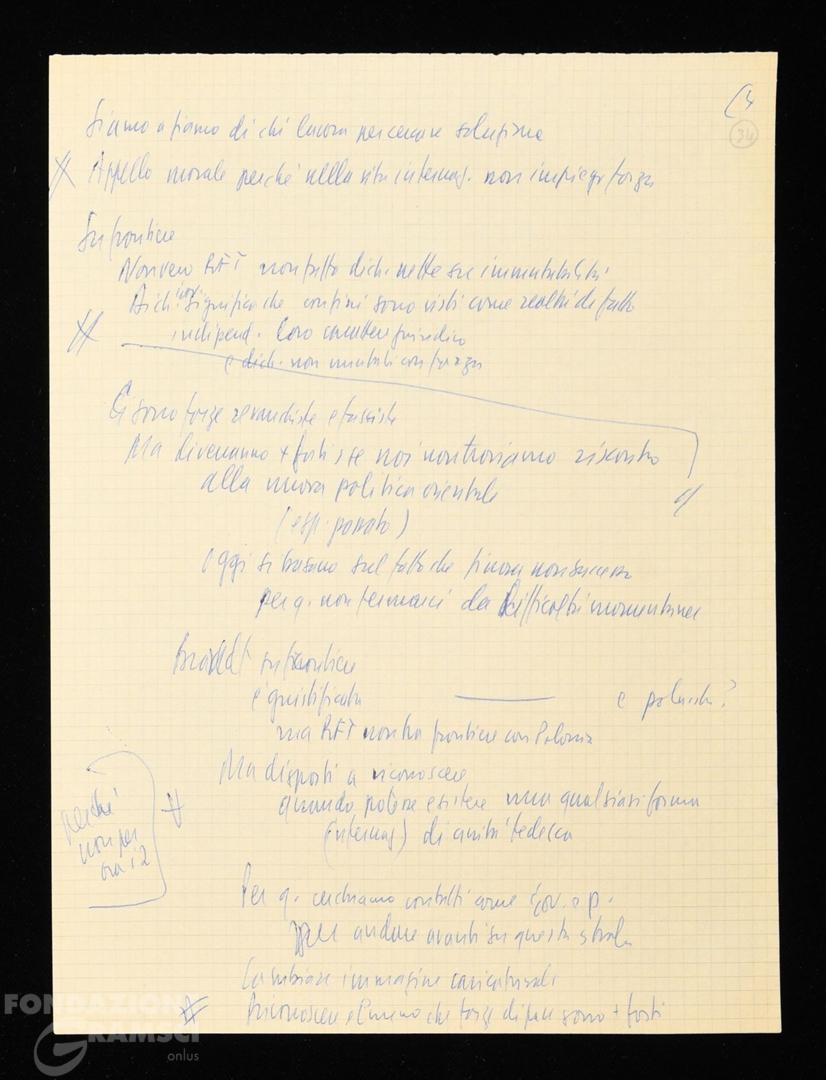 (4
34
Siamo a fianco di chi lavora per cercare soluzione
Appello morale perché nella vita internaz. non impiego forza
Su frontiere
Non vero RFT non fatto dich. nette su immutabilità
Dich. significa che confini sono visti come realtà di fatto
indipend. loro carattere giuridico
e dich. non mutabili con forza
Ci sono forze revansciste e fasciste
Ma diverranno + forti se noi non troviamo riscontro
alla nuova politica orientale
(esp. passato)
Oggi si basano sul fatto che finora non successo
per q. non fermarci da difficoltà momentanee
Brandt su frontiere
è giustificata e polacchi?
ma RFT non ha frontiere con Polonia
Ma disposti a riconoscere
quando potesse esistere una qualsiasi forma
(internaz) di unità tedesca
perché
non per
ora i 2
Per q. cerchiamo contatti come gov. e p.
per andare avanti su questa strada
Cambiare immagine caricaturale
Riconoscere almeno che forze di pace sono + forti
FONDAZIONE
GRAMSCI
onlus